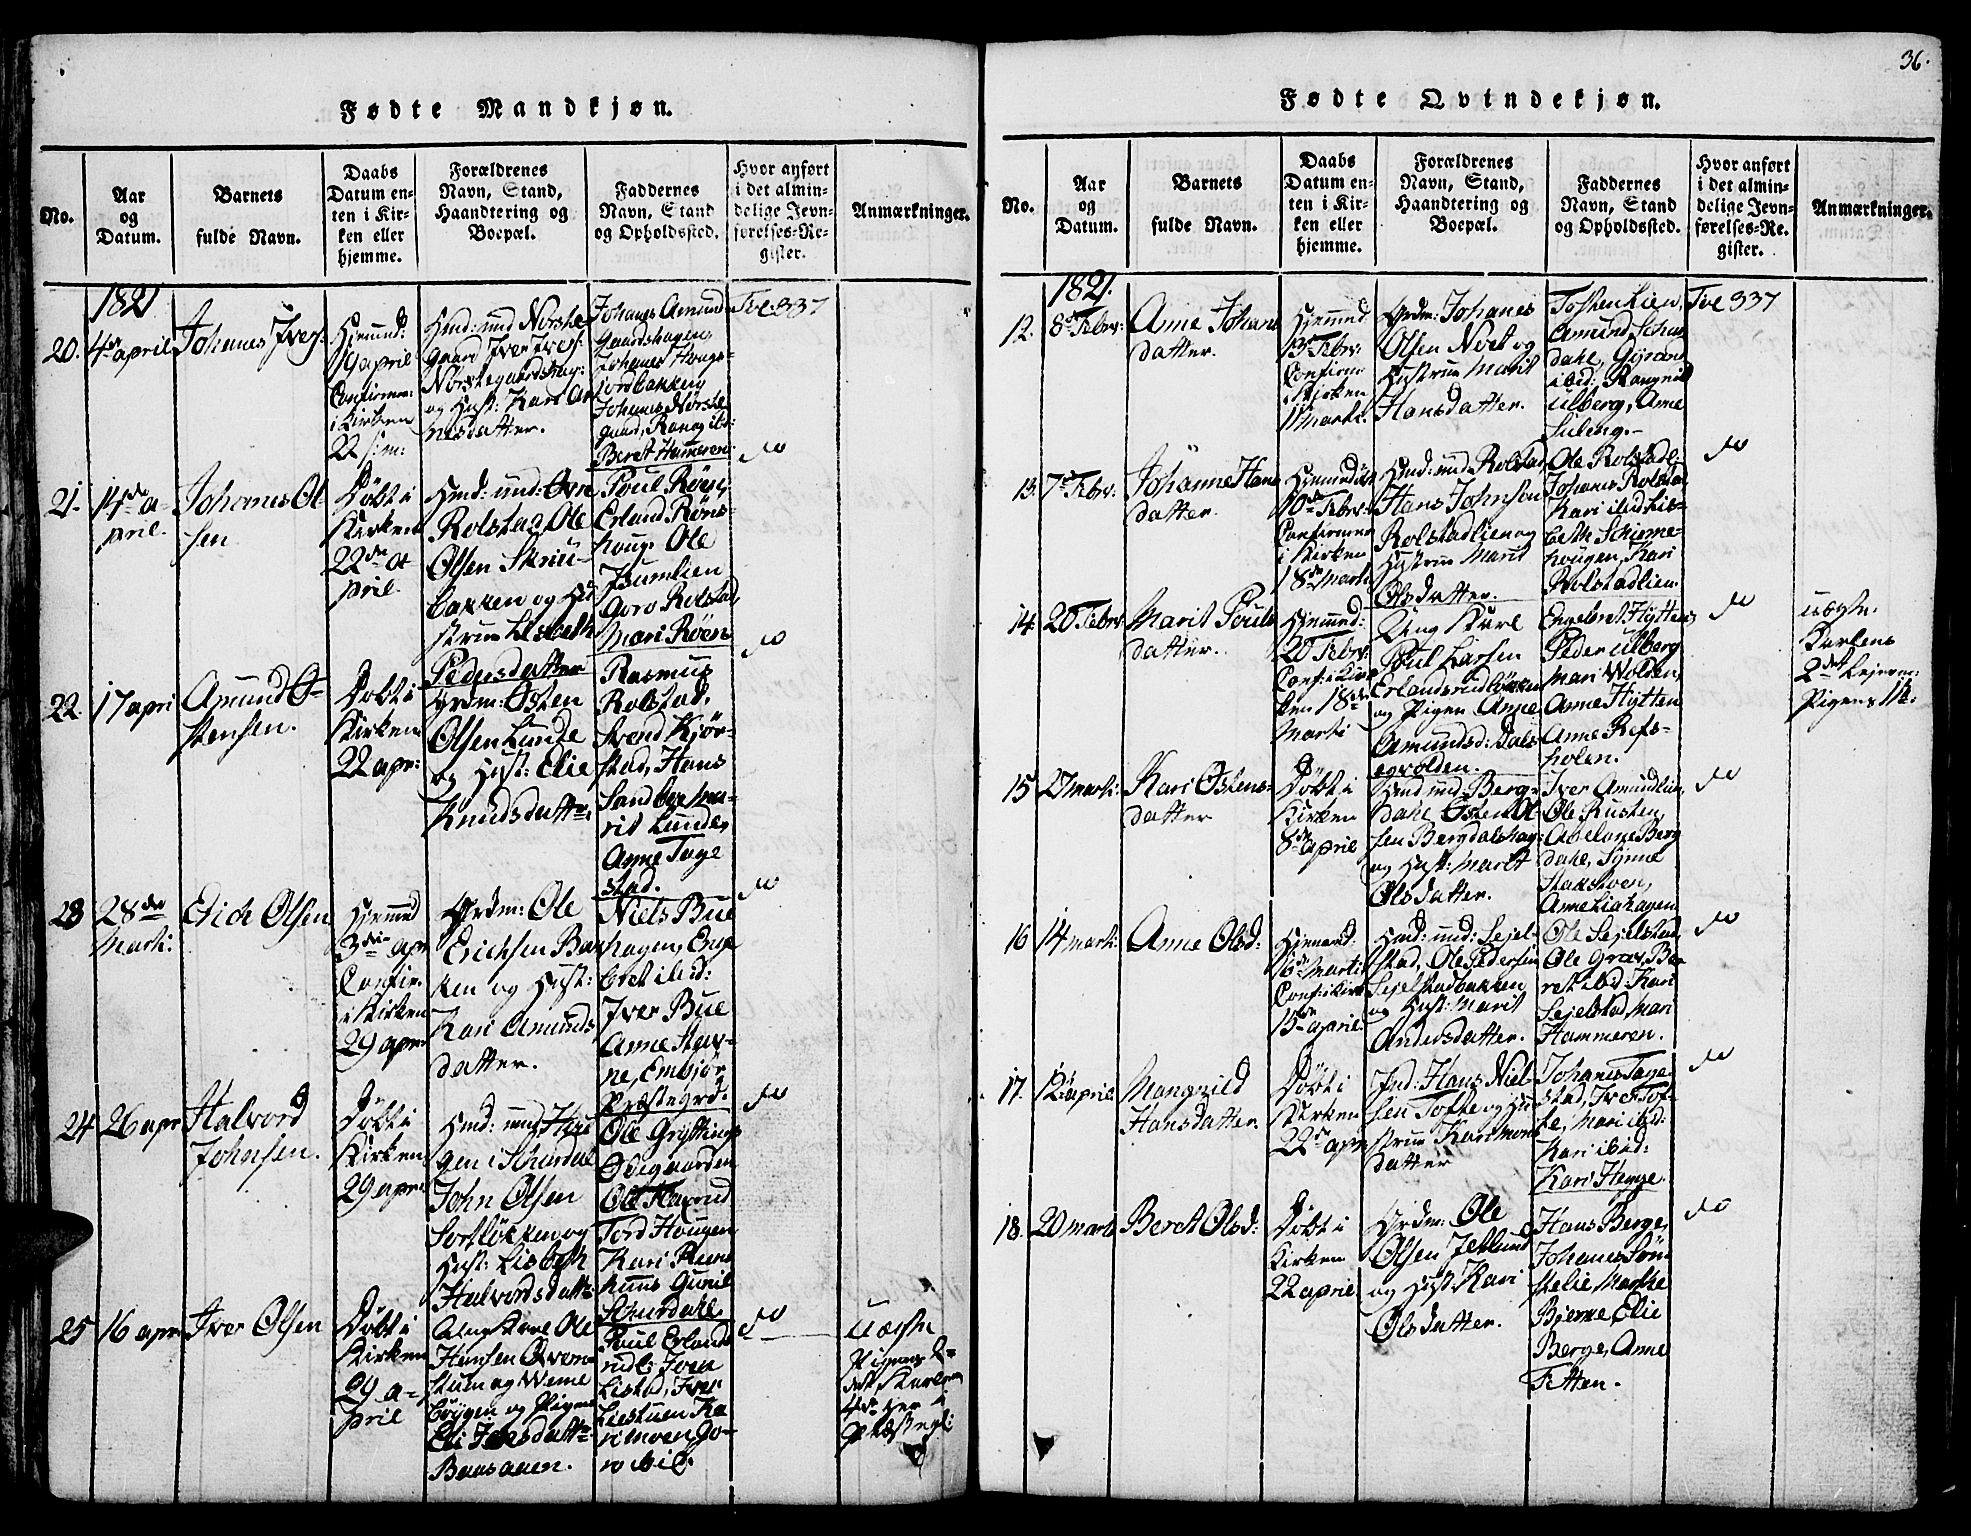 36.
Fødte Mandkjøn.
No.
Aar
og
Datum.
Barnets
fulde Navn.
Daabs
Datum en-
ten i Kir-
ken eller
hjemme.
Forældrenes
Navn, Stand,
Haandtering og
Boepæl.
Faddernes
Navn, Stand
og Opholdssted.
Hvor anført
i det almin-
delige Jevn-
førelses-Re-
gister.
Anmærkninger.
1821
20.
4de april
Johanes Ivers:
Hjemmed:
9 april
Confirm:
i Kirken
22
og Hust: Kari
Johanes Amund
Gaardshagen,
Johanes
Johanes Norste
gaard, Ranog ibd:
Beret Hammeren.
Fol: 337
21.
14de a-
pril.
Johanes Ol
sen
Døbt i
Kirken
22de a
pril
Hmd: und: Øvre
Rolstad Ole
Olsen Skriu-
bakken og Hu
strue Lisbeth
Pedersdatter
Poul Røen,
Erland Røns-
houg, Ole
Isumlien
Goro Rolstad,
Mari Røen
do
22
17 apri
Amund Ø-
stensen.
Døbt i
Kirken
22 apr:
Grdm: Østen
Olsen Lunde
og Hust: Elie
Knudsdatter
Rasmus
Rolstad,
Svend Kjør-
stad, Hans
Sandboe Ma-
rit Lunde,
Anne Tage
stad.
do
23
28de
Mart:
Erich Olsen
Hjemmed
3die apr
Confir.
i Kirken
29 apr
Grdm: Ole
Erichsen Bak
ken og Hust:
Kari Amunds
datter.
Niels Bue
hagen, Enge
bret ibid:
Iver Bue
Anne Stav-
ne, Embjør
Præstegrd.
do
24
26 apr
Halvord
Johnsen.
Døbt i
Kirken
29 apri
John Olsen
Sortløkken og
Hust: Lisbeth
Halvordsdatt:
Ole Gryttings
Ødegaarden
Tord Hougen
Kari
Gunil
Schurdahl
do
25
16 apr
Iver Olsen
Døbt i
Kirken
29 a-
pril
Ungkarl Ole
Hansen
og Pigen
Baasaaen.
Poul Erland
rud, Iver
Listad, Iver
Liestuen Ka
ri Moen, Go-
ro ibid.
do
Uægte
Pigens
Karlens
Fødte Qvindekjøn.
No.
Aar
og
Datum.
Barnets
fulde Navn.
Daabs
Datum en-
ten i Kir-
ken eller
hjemme.
Forældrenes
Navn, Stand,
Haandtering og
Boepæl.
Faddernes
Navn, Stand
og Opholdssted.
Hvor anført
i det almin-
delige Jevn-
førelses-Re-
gister.
Anmærkninger.
1821.
12.
8de Febr:
Anne Johans
datter.
Hjemmed
13 Febr:
Confirm
i Kirken
11 Marti.
Grdm: Johanes
Olsen Noet og
Hustrue Marit
Hansdatter.
Tosten Lien,
Amund Schur
dahl,
ibid: Rangnil
Ulberg, Anne
Fol 337
13.
7de Febr:
Johanne Hans
datter.
Hjemmedøbt
10de Febr:
Confirmer
i Kirken
18de Marti
Hmd: und Rolstad
Hans Johnsen
Rolstadlien og
Hustrue Marit
Olsdatter.
Ole Rolstad:
Johanes Rolstad,
Kari ibid Lis-
beth Schieme-
hougen, Kari
Rolstadlien
do
14.
20 Febr
Marit Pouls
datter.
Hjemmed:
20 Febr:
Conf: i Kir
ken 18de
Marti
Ung Karl
Poul Larsen
Erlandsrudløkken
og Pigen Anne
Amundsd: Dals
egvolden.
Engebret Hytten,
Peder Ulberg
Mari Wolden,
Anne Hytten
Anne Refs-
holen.
do
uægte.
Karlens
2det Leierm:
Pigens 1te.
15
27 mart:
Kari Østens-
datter
Døbt i
Kirken
8de april
Hmd und Berg-
dahl Østen Ol
sen Bergdalshag:
og Hust: Marit
Olsdatter.
Iver Amundlien,
Ole Rusten,
Abelone Berg
dahl, Synne
Anne Liahagen
do
16
14 mart:
Anne Olsd:
Hjemmed:
16de Marti
Conf: i Kirk
15de april.
Hmd: und: Sejel-
stad, Ole Pedersen
Sejelstadbakken
og Hust: Marit
Andersdatter.
Ole Sejelstad
Ole Grav, Be
ret ibid: Kari
Sejelstad, Mari
Hammeren.
do
17.
12te april
Mangnild
Hansdatter
Døbt i
Kirken
22de apr
Ind: Hans Niel
sen Tofte og Hu
strue Kari Mons
datter
Johanes Tage
stad, Iver Tof-
te, Mari ibid:
Kari ibid:
Kari Hegge.
do
18.
20 marti
Beret Olsd:
Døbt i
Kirken
22 april
Grdm: Ole
Olsen Jetlund
og Hust: Kari
Olsdatter.
Hans Berge,
Johanes Søn-
stelie Marthe
Bjerne, Elie
Berge, Anne
Fetten.
do